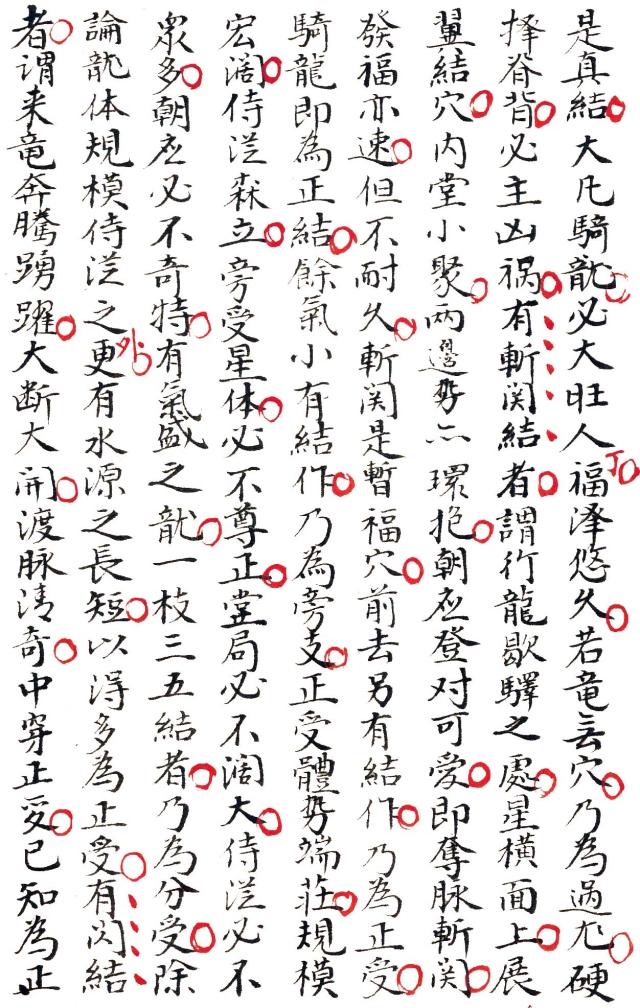 是真結大凡騎龍必大旺人福泽悠久若竜穴乃為過硬
择脊背必主凶祸有斬関結者謂行龍歇驛之處星横面上展
翼結穴内堂小聚两邊势亦環抱朝应登对可愛即奪脉斬関
發福亦速但不耐久斬関是暫福穴前去另有結作乃為正受
騎龍即為正結餘氣小有結作乃為旁支正受體势端莊規模
宏阔侍従森立旁受星体必不尊正堂局必不阔大侍従必不
眾多朝应必不奇特有氣盛之龍一枝三五結者乃為分受除
論龍体規模侍従之外更有水源之長短以淂多為正受有闪結
者谓来竜奔騰踴躍大断大開渡脉清奇中穿正受已知為正